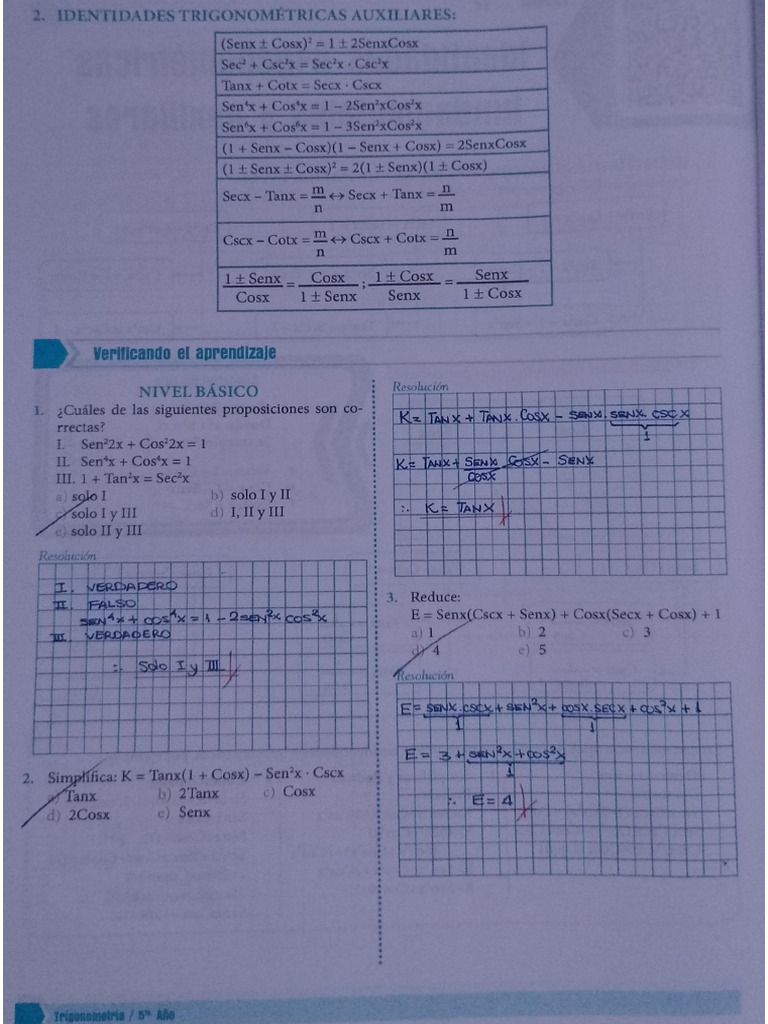 2. IDENTIDADES TRIGONOMÉTRICAS AUXILIARES:
(Senx ± Cosx)² = 1 ± 2SenxCosx
Sec² + Csc²x = Sec²x · Csc²x
Tanx + Cotx = Secx · Cscx
Sen⁴x + Cos⁴x = 1 – 2Sen²xCos²x
Sen⁶x + Cos⁶x = 1 – 3Sen²xCos²x
(1 + Senx – Cosx)(1 – Senx + Cosx) = 2SenxCosx
(1 ± Senx ± Cosx)² = 2(1 ± Senx)(1 ± Cosx)
Secx – Tanx = m/n ↔ Secx + Tanx = n/m
Cscx – Cotx = m/n ↔ Cscx + Cotx = n/m
1 ± Senx/Cosx = Cosx/1 ± Senx ; 1 ± Cosx/Senx = Senx/1 ± Cosx
Verificando el aprendizaje
NIVEL BÁSICO
1. ¿Cuáles de las siguientes proposiciones son co-
rrectas?
I. Sen²2x + Cos²2x = 1
II. Sen⁴x + Cos⁴x = 1
III. 1 + Tan²x = Sec²x
a) solo I b) solo I y II
c) solo I y III d) I, II y III
e) solo II y III
Resolución
I. VERDADERO
II. FALSO
SEN⁴x + COS⁴x = 1 - 2SEN²x COS²x
III. VERDADERO
∴ Solo I y III
2. Simplifica: K = Tanx(1 + Cosx) – Sen²x · Cscx
a) Tanx b) 2Tanx c) Cosx
d) 2Cosx e) Senx
Resolución
K = TANX + TANX . COSX - SENX. SENX. CSCX
1
K = TANX + SENX/COSX COSX - SENX
∴ K = TANX
3. Reduce:
E = Senx(Cscx + Senx) + Cosx(Secx + Cosx) + 1
a) 1 b) 2 c) 3
d) 4 e) 5
Resolución
E = SENX.CSCX + SEN²X + COSX.SECX + COS²X + 1
1 1
E = 3 + SEN²X + COS²X
1
∴ E = 4
Trigonometría / 5to Año